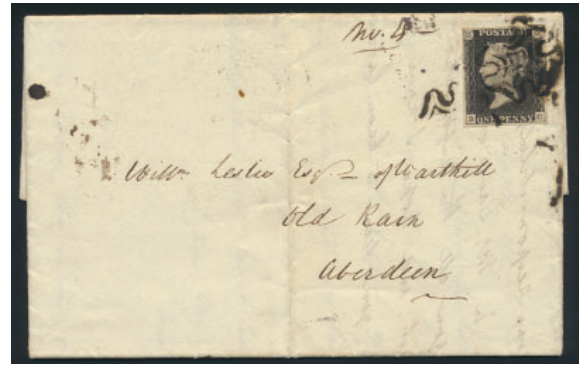 No. 4
POSTAGE
ONE PENNY
Willm Leslie Esqr of Warthill
Old Rain
Aberdeen